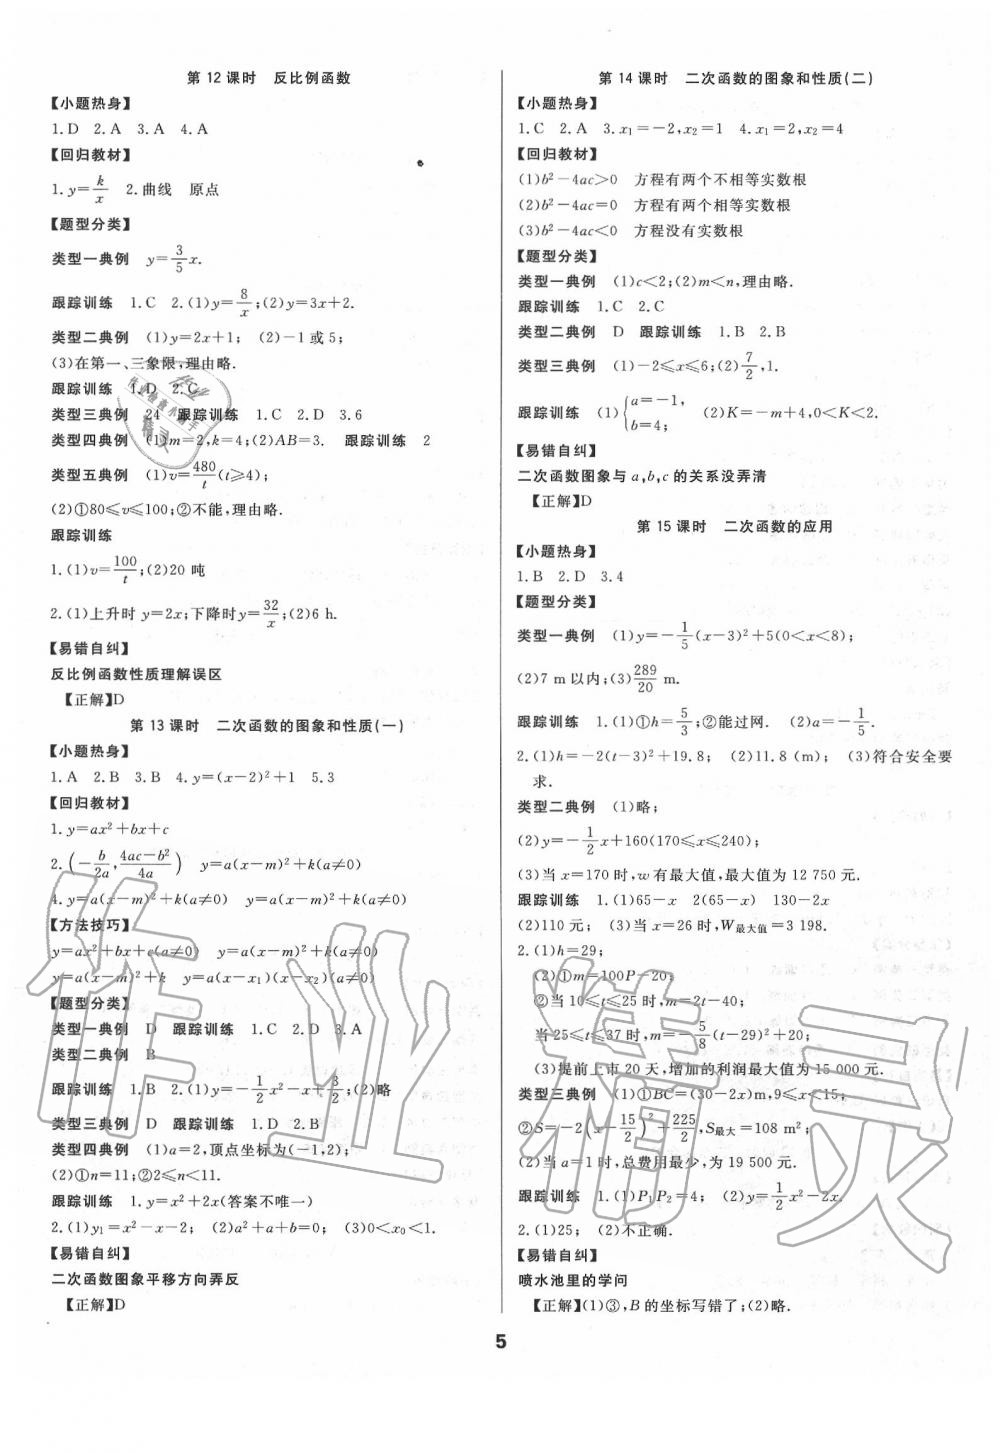 第12课时 反比例函数
【小题热身】
1.D 2.A 3.A 4.A
【回归教材】
1.y=k/x 2.曲线 原点
【题型分类】
类型一典例 y=3/5x.
跟踪训练 1.C 2.(1)y=8/x;(2)y=3x+2.
类型二典例 (1)y=2x+1; (2)-1或5;
(3)在第一、三象限,理由略.
跟踪训练 1.D 2.C
类型三典例 24 跟踪训练 1.C 2.D 3.6
类型四典例 (1)m=2,k=4;(2)AB=3. 跟踪训练 2
类型五典例 (1)v=480/t(t≥4);
(2)①80≤v≤100;②不能,理由略.
跟踪训练
1.(1)v=100/t;(2)20吨
2.(1)上升时y=2x;下降时y=32/x;(2)6 h.
【易错自纠】
反比例函数性质理解误区
【正解】D
第13课时 二次函数的图象和性质(一)
【小题热身】
1.A 2.B 3.B 4.y=(x-2)²+1 5.3
【回归教材】
1.y=ax²+bx+c
2.(-b/2a,4ac-b²/4a) y=a(x-m)²+k(a≠0)
4.y=a(x-m)²+k(a≠0) y=a(x-m)²+k(a≠0)
【方法技巧】
y=ax²+bx+c(a≠0) y=a(x-m)²+k(a≠0)
y=a(x-m)²+k y=a(x-x₁)(x-x₂)(a≠0)
【题型分类】
类型一典例 D 跟踪训练 1.C 2.D 3.A
类型二典例 B
跟踪训练 1.B 2.(1)y=-1/2x²-x+3/2;(2)略
类型三典例 D 跟踪训练 1.D 2.B
类型四典例 (1)a=2,顶点坐标为(-1,2);
(2)①n=11;②2≤n<11.
跟踪训练 1.y=x²+2x(答案不唯一)
2.(1)y₁=x²-x-2; (2)a²+a+b=0; (3)0<x₀<1.
【易错自纠】
二次函数图象平移方向弄反
【正解】D
第14课时 二次函数的图象和性质(二)
【小题热身】
1.C 2.A 3.x₁=-2,x₂=1 4.x₁=2,x₂=4
【回归教材】
(1)b²-4ac>0 方程有两个不相等实数根
(2)b²-4ac=0 方程有两个相等实数根
(3)b²-4ac<0 方程没有实数根
【题型分类】
类型一典例 (1)c<2;(2)m<n,理由略.
跟踪训练 1.C 2.C
类型二典例 D 跟踪训练 1.B 2.B
类型三典例 (1)-2≤x≤6;(2)7/2,1.
跟踪训练 (1){a=-1, b=4; (2)K=-m+4,0<K<2.
【易错自纠】
二次函数图象与a,b,c的关系没弄清
【正解】D
第15课时 二次函数的应用
【小题热身】
1.B 2.D 3.4
【题型分类】
类型一典例 (1)y=-1/5(x-3)²+5(0<x<8);
(2)7 m以内;(3)289/20 m.
跟踪训练 1.(1)①h=5/3;②能过网. (2)a=-1/5.
2.(1)h=-2(t-3)²+19.8; (2)11.8 (m); (3)符合安全要
求.
类型二典例 (1)略;
(2)y=-1/2x+160(170≤x≤240);
(3)当x=170时,w有最大值,最大值为12 750元.
跟踪训练 1.(1)65-x 2(65-x) 130-2x
(2)110元; (3)当x=26时,W最大值=3 198.
2.(1)h=29;
(2)①m=100P-20;
②当10≤t≤25时,m=2t-40;
当25≤t≤37时,m=-5/8(t-29)²+20;
(3)提前上市20天,增加的利润最大值为15 000元.
类型三典例 (1)①BC=(30-2x)m,9≤x<15;
②S=-2(x-15/2)²+225/2,S最大=108 m²;
(2)当a=1时,总费用最少,为19 500元.
跟踪训练 1.(1)P₁P₂=4; (2)y=1/2x²-2x.
2.(1)25; (2)不正确.
【易错自纠】
喷水池里的学问
【正解】(1)③,B的坐标写错了;(2)略.
5
作业精灵